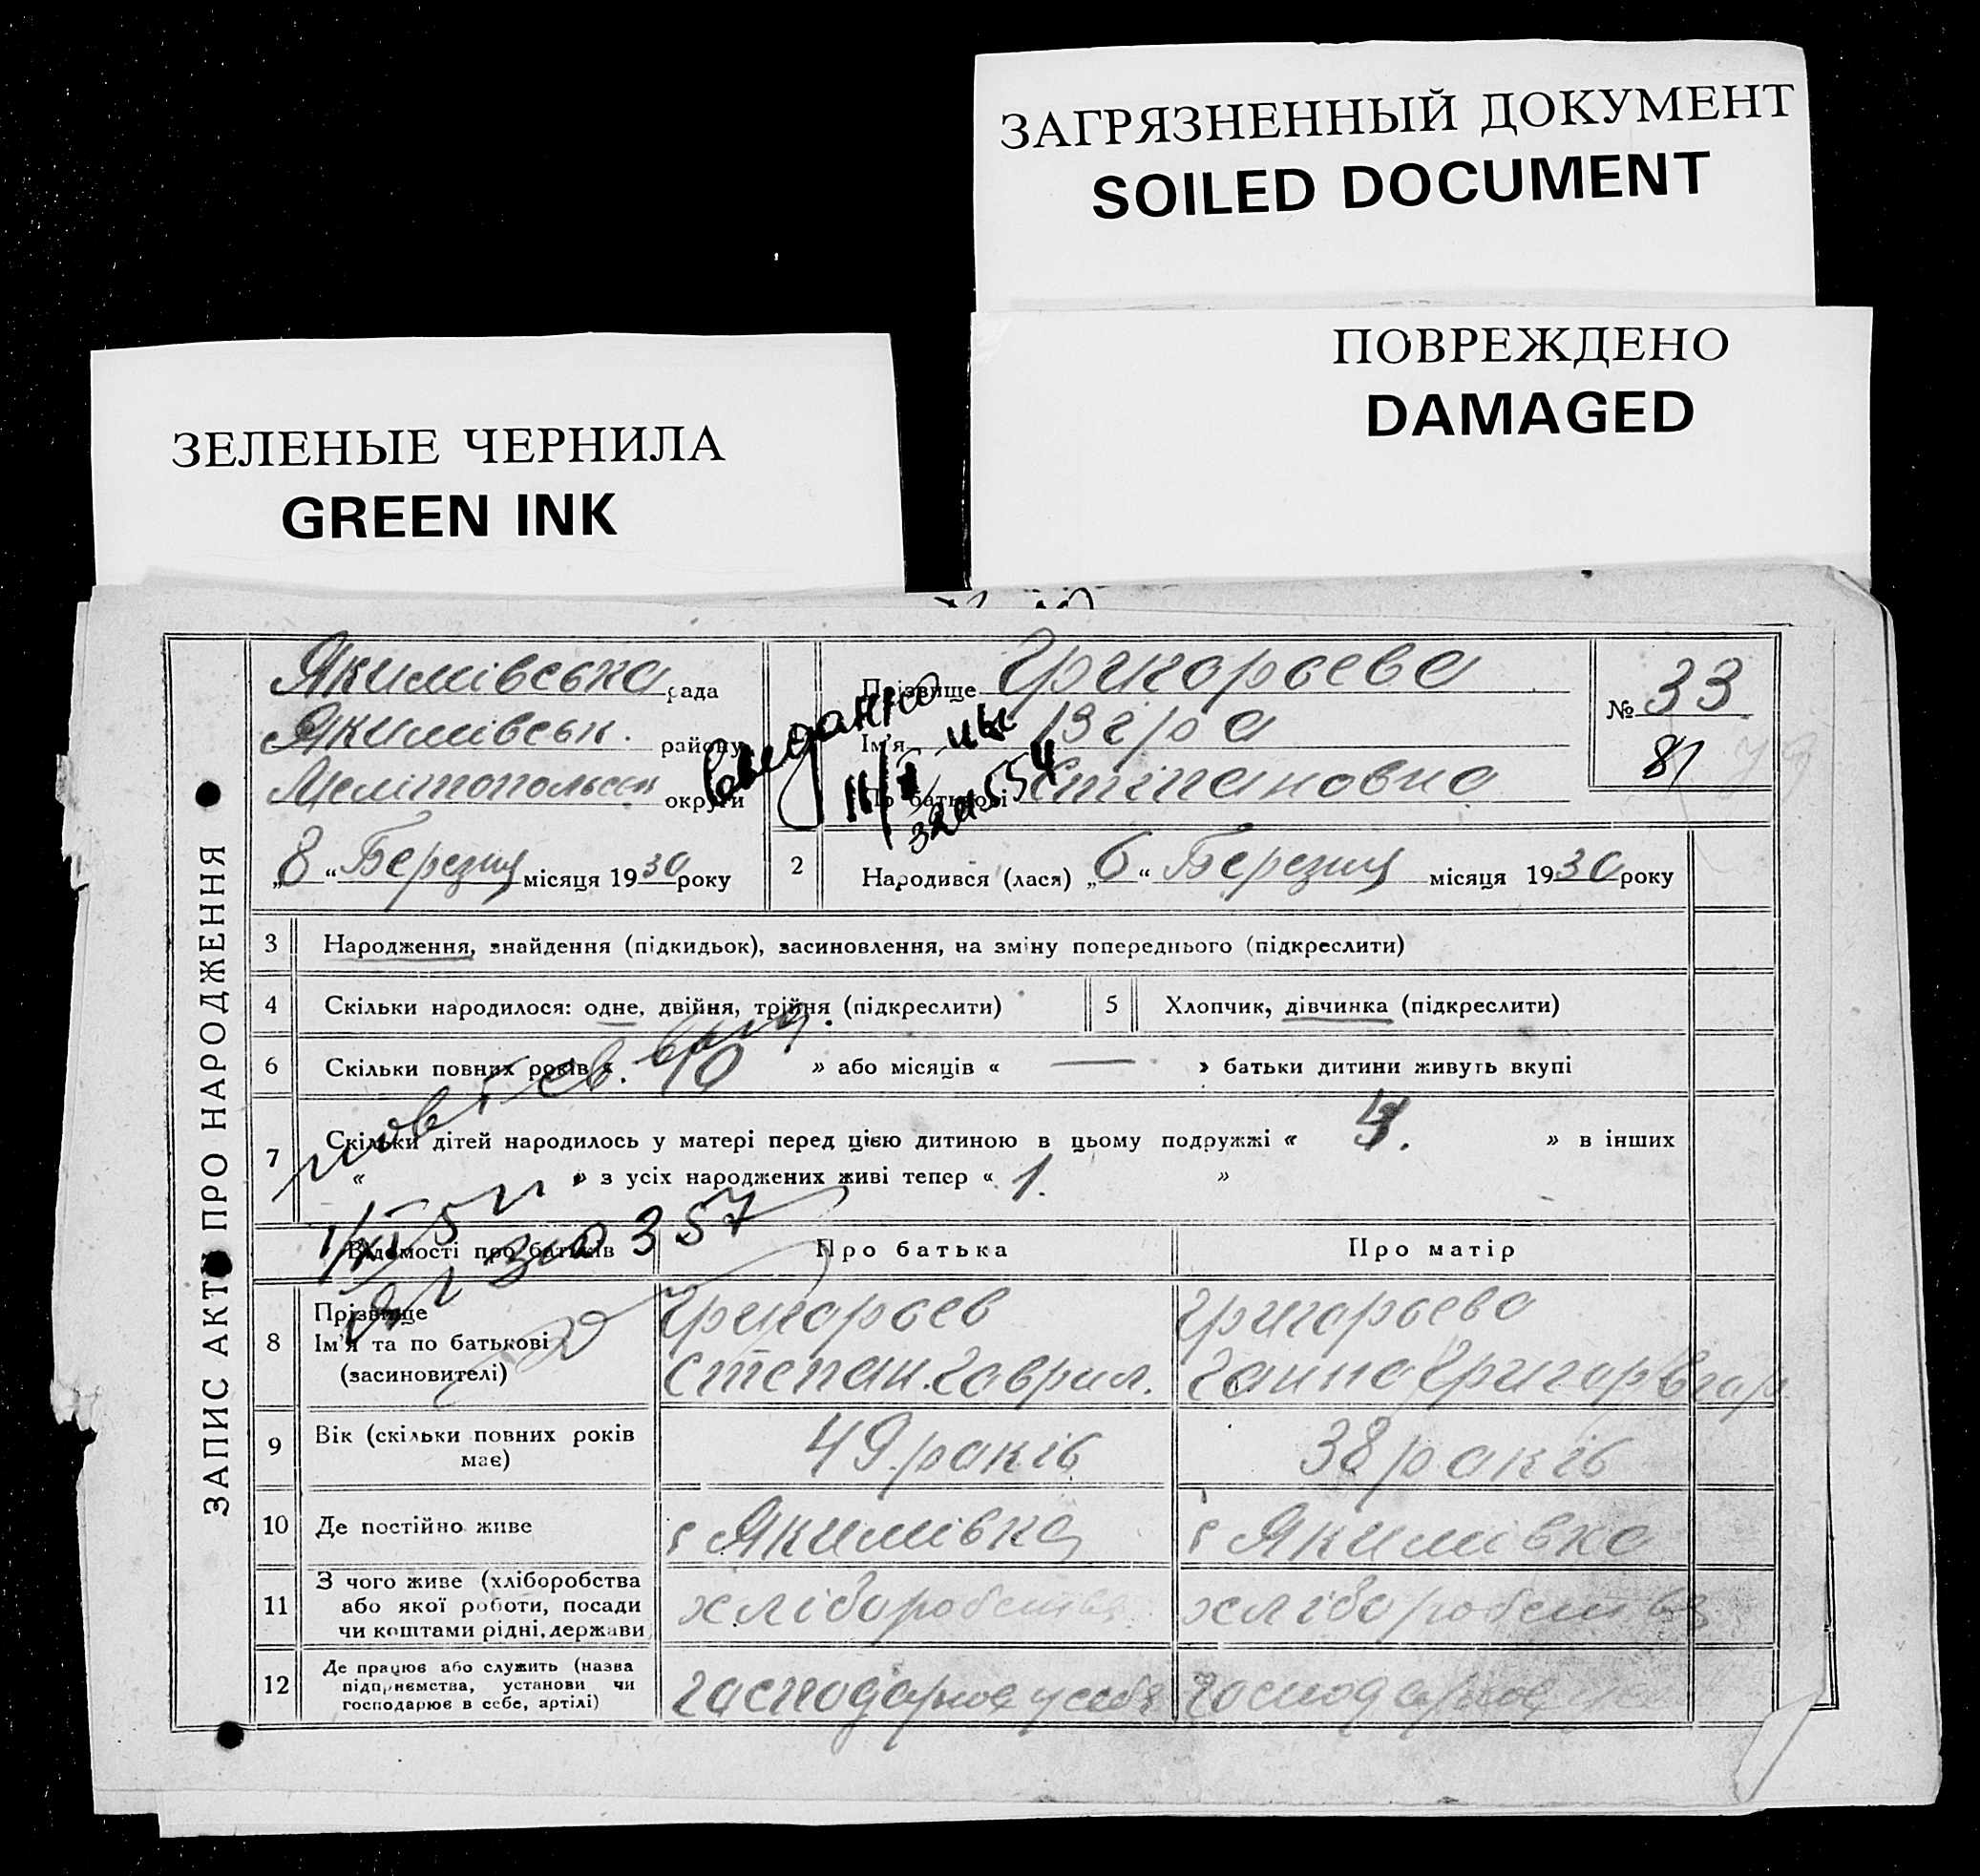 ЗАГРЯЗНЕННЫЙ ДОКУМЕНТ
SOILED DOCUMENT
ПОВРЕЖДЕНО
DAMAGED
ЗЕЛЕНЫЕ ЧЕРНИЛА
GREEN INK
ЗАПИС АКТУ ПРО НАРОДЖЕННЯ
Якимівська рада
Якимівськ. району
Мелітопольськ округи
„8“ Березня місяця 1930 року
Прізвище Григорьева
Ім'я Віра
По батькові Степановна
№ 33
81
2 Народився (лася) „6“ Березня місяця 1930 року
3 Народження, знайдення (підкидьок), засиновлення, на зміну попереднього (підкреслити)
4 Скільки народилося: одне, двійня, трійня (підкреслити)
5 Хлопчик, дівчинка (підкреслити)
6 Скільки повних років « 10 » або місяців « — » батьки дитини живуть вкупі
7 Скільки дітей народилось у матері перед цією дитиною в цьому подружжі « 4. » в інших
« » з усіх народжених живі тепер « 1. »
Відомості про батьків Про батька Про матір
8 Прізвище Григорьев Григорьева
Ім'я та по батькові Степан. Гаврил. Ганна Григор
(засновителі)
9 Вік (скільки повних років має) 49 років 38 років
10 Де постійно живе с Якимівка с Якимівка
11 З чого живе (хліборобства
або якої роботи, посади
чи коштами рідні, держави
хліборобства хліборобства
12 Де працює або служить (назва
підприємства, установи чи
господарює в себе, артілі)
господарює у себе господарює